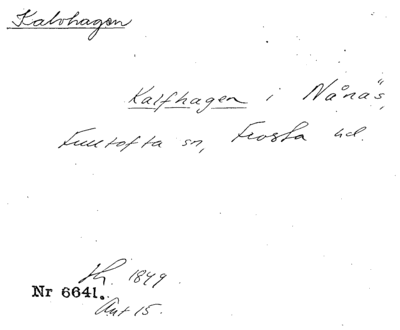 Kalvhagen
Kalfhagen i Nånäs,
Fulltofta sn, Frosta hd.
Sk. 1849
Nr 6641.
Akt 15.